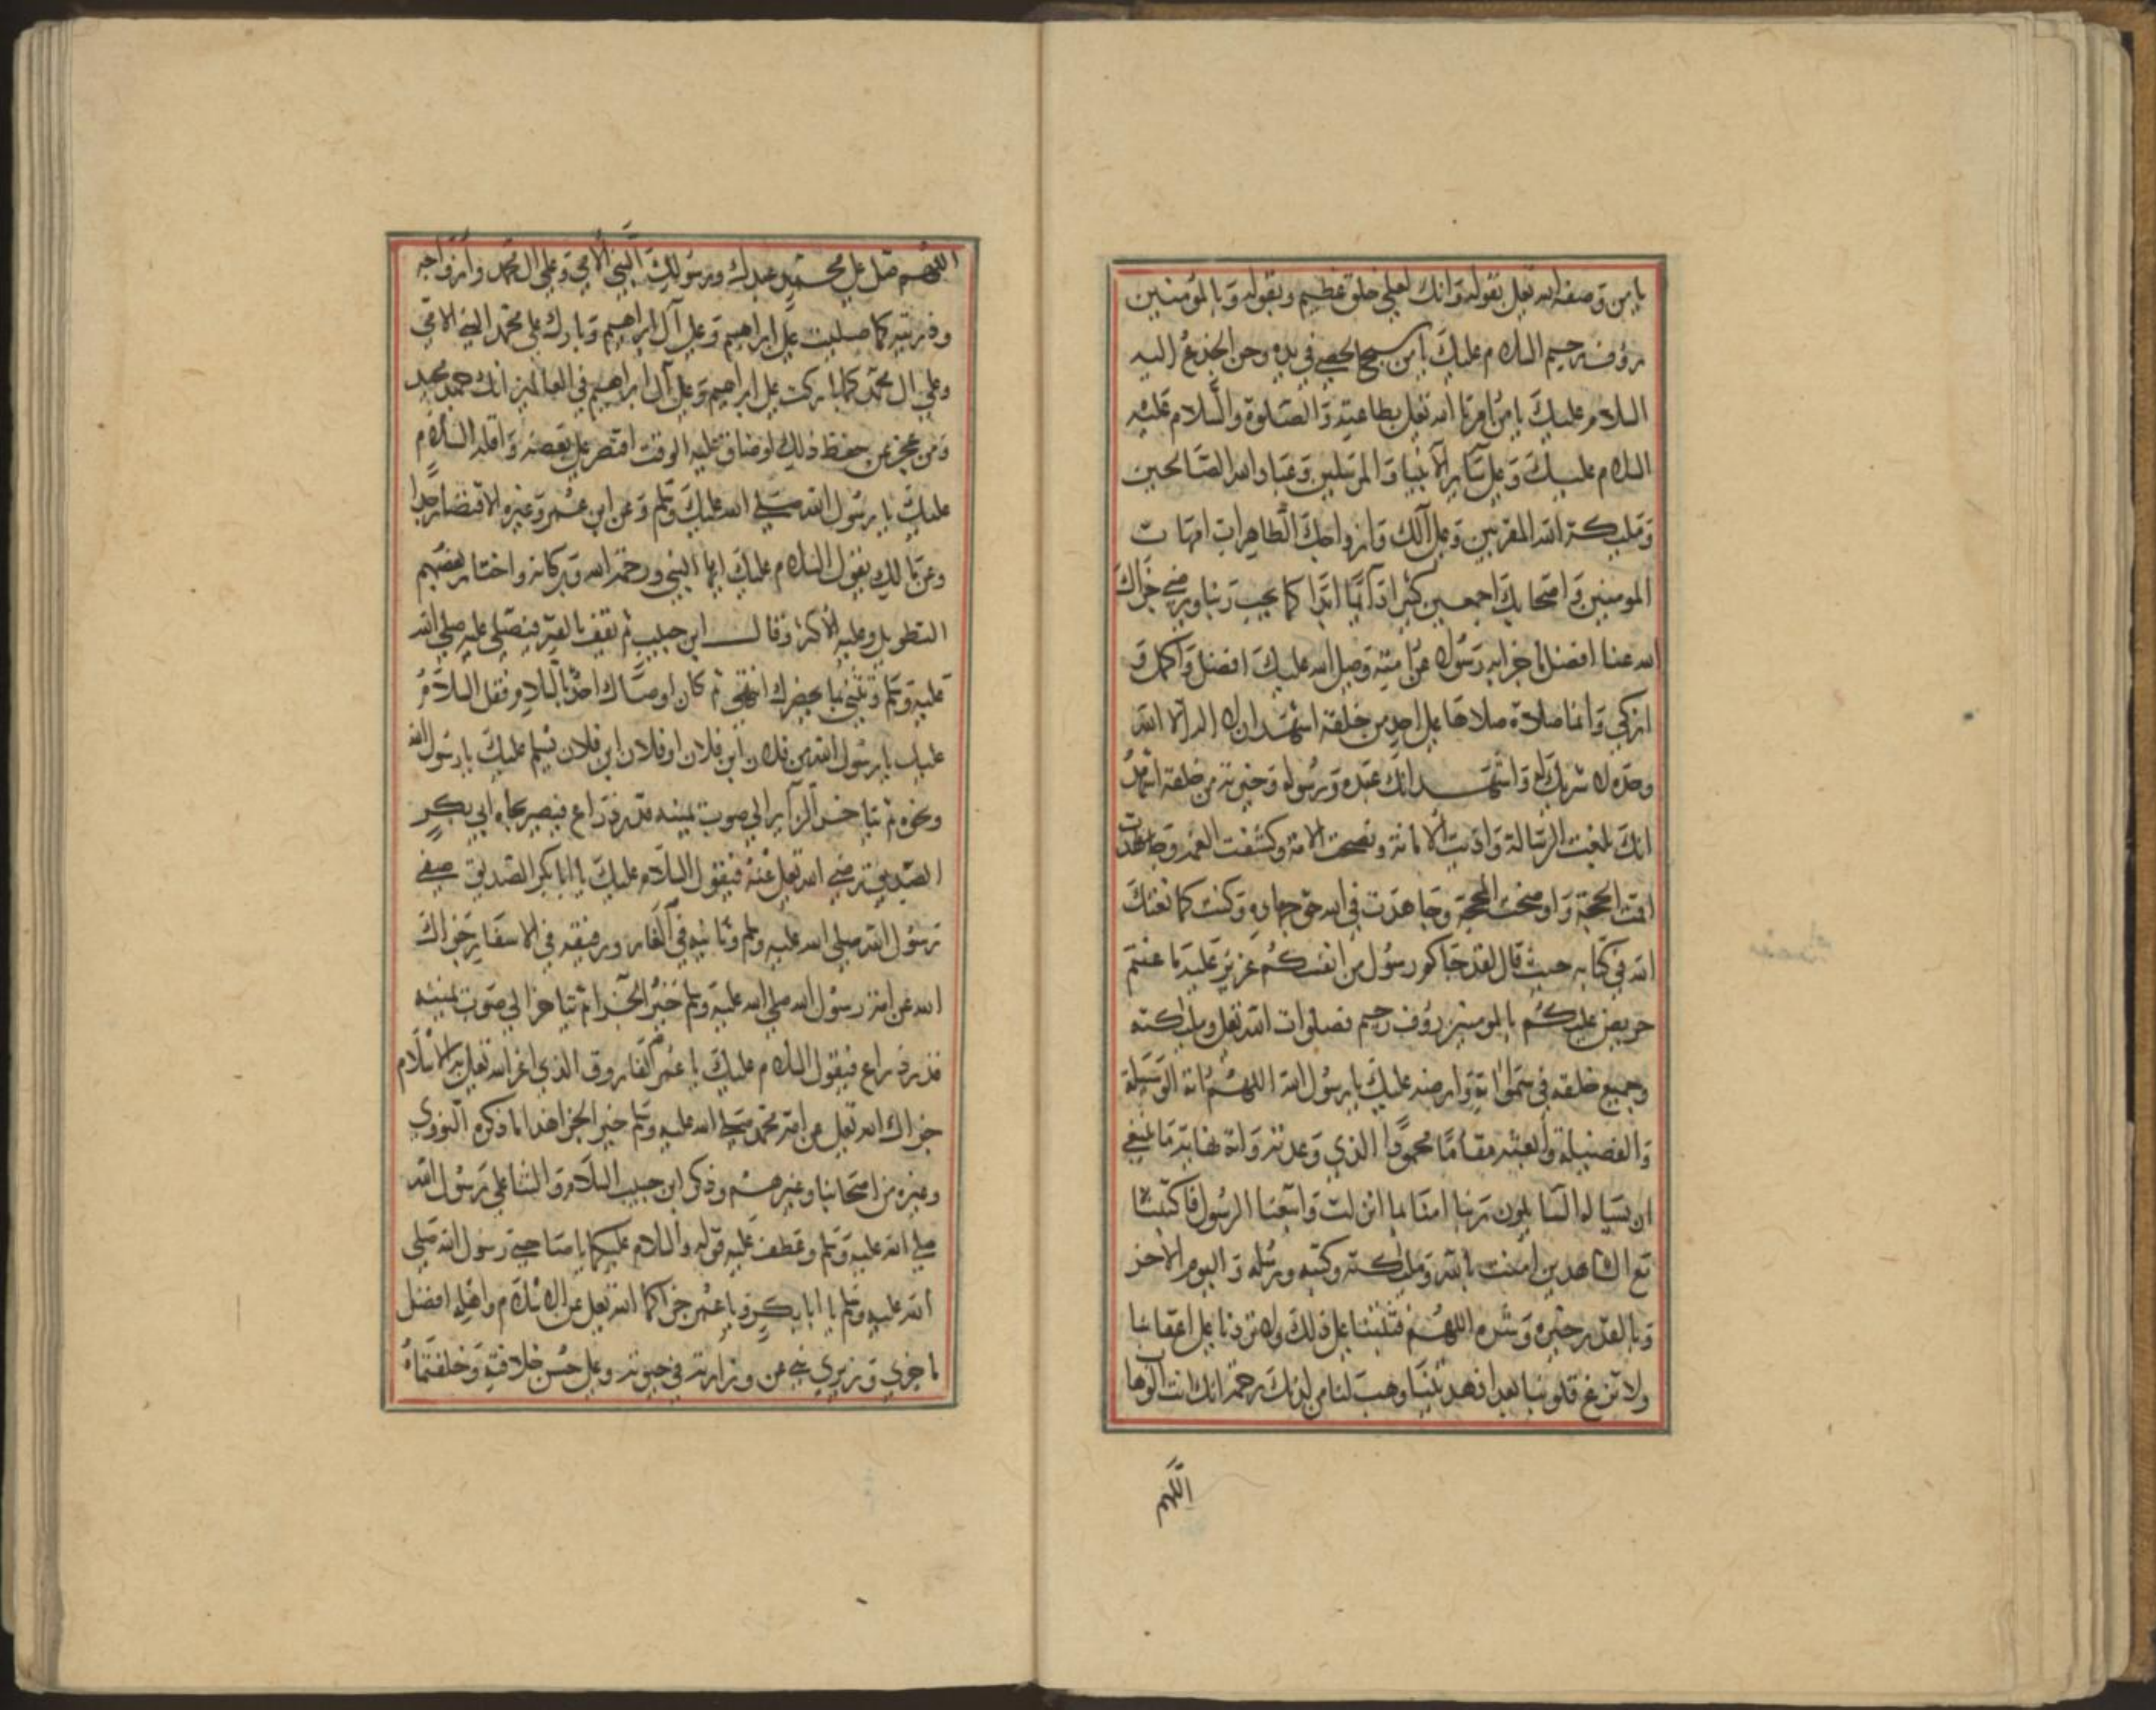 يا من وصفه الله تعلى بقوله وانك لعلى خلق عظيم وبقوله وبالمؤمنين
رؤف رحيم السلام عليك يا من سبح الحصى في يده وحن الجذع اليه
السلام عليك يا من امرنا الله تعلى بطاعته والصلوة والسلام عليه
السلام عليك وعلى سائر الانبيا والمرسلين وعباد الله الصالحين
وملئكة الله المقربين وعلى آلك وازواجك الطاهرات امهات
المومنين واصحابك اجمعين كثيرا دائما ابدا كما يحب ربنا ويرضى جزاك
الله عنا افضل ما جزا به رسولا عن امته وصلى الله عليك افضل واكمل و
ازكى وانما صلاة صلاها على احد من خلقه اشهد ان لا اله الا الله
وحده لا شريك له واشهد انك عبده ورسوله وخيرته من خلقه اشهد
انك بلغت الرسالة واديت الامانة ونصحت الامة وكشفت الغمة وجاهدت
اقمت الحجة واوضحت المحجة وجاهدت في الله حق جهاده وكنت كما نعتك
الله في كتابه حيث قال لقد جاكم رسول من انفسكم عزيز عليه ما عنتم
حريص عليكم بالمومنين رؤف رحيم فصلوات الله تعلى وملئكته
وجميع خلقه في سمواته وارضه عليك يا رسول الله اللهم اته الوسيلة
والفضيلة وابعثه مقاما محمودا الذي وعدته واته نهاية ما ينبغي
ان يساله السايلون ربنا امنا بما انزلت واتبعنا الرسول فاكتبنا
مع الشاهدين امنت بالله وملئكته وكتبه ورسله واليوم الاخر
وبالقدر خيره وشره اللهم فثبتنا على ذلك ولا تردنا على اعقابنا
ولا تزغ قلوبنا بعد اذ هديتنا وهب لنا من لدنك رحمة انك انت الوهاب
اللهم
اللهم صل على محمد عبدك ورسولك النبي الامي وعلى ال محمد وازواجه
وذريته كما صليت على ابراهيم وعلى آل ابراهيم وبارك على محمد النبي الامي
وعلى ال محمد كما باركت على ابراهيم وعلى آل ابراهيم في العالمين انك حميد مجيد
ومن عجز عن حفظ ذلك او ضاق عليه الوقت اقتصر على بعضه واقله السلام
عليك يا رسول الله صلى الله عليك وسلم وعن ابن عمر وغيره الاقتصار جدا
وعن مالك يقول السلام عليك ايها النبي ورحمة الله وبركاته واختار بعضهم
التطويل وعليه الاكثر وقال ابن حبيب ثم تقف بالقبر فيصلى عليه صلى الله
عليه وسلم وتثني بما يحضرك انتهى ثم كان اوصاك احد بالسلام فقل السلام
عليك يا رسول الله من فلان ابن فلان او فلان ابن فلان يسلم عليك يا رسول الله
ونحوه ثم يتاخر الزاير الى صوب يمينه قدر ذراع فيصير تجاه ابي بكر
الصديق رضي الله تعلى عنه فيقول السلام عليك يا ابا بكر الصديق صفي
رسول الله صلى الله عليه وسلم وثانيه في الغار ورفيقه في الاسفار جزاك
الله عن امة رسول الله صلى الله عليه وسلم خير الجزا ثم يتاخر الى صوب يمينه
قدر ذراع فيقول السلام عليك يا عمر الفاروق الذي اعز الله تعلى به الاسلام
جزاك الله تعلى عن امة محمد صلى الله عليه وسلم خير الجزا هذا ما ذكره النووي
وغيره من اصحابنا وغيرهم وذكر ابن حبيب السلام والثنا على رسول الله
صلى الله عليه وسلم وعطف عليه قوله والسلام عليكما يا صاحبي رسول الله صلى
الله عليه وسلم يا ابا بكر ويا عمر جزاكما الله تعلى عن الاسلام واهله افضل
ما جزى وزيري نبي عن وزارته في حيوته وعلى حسن خلافته وخلفتماه